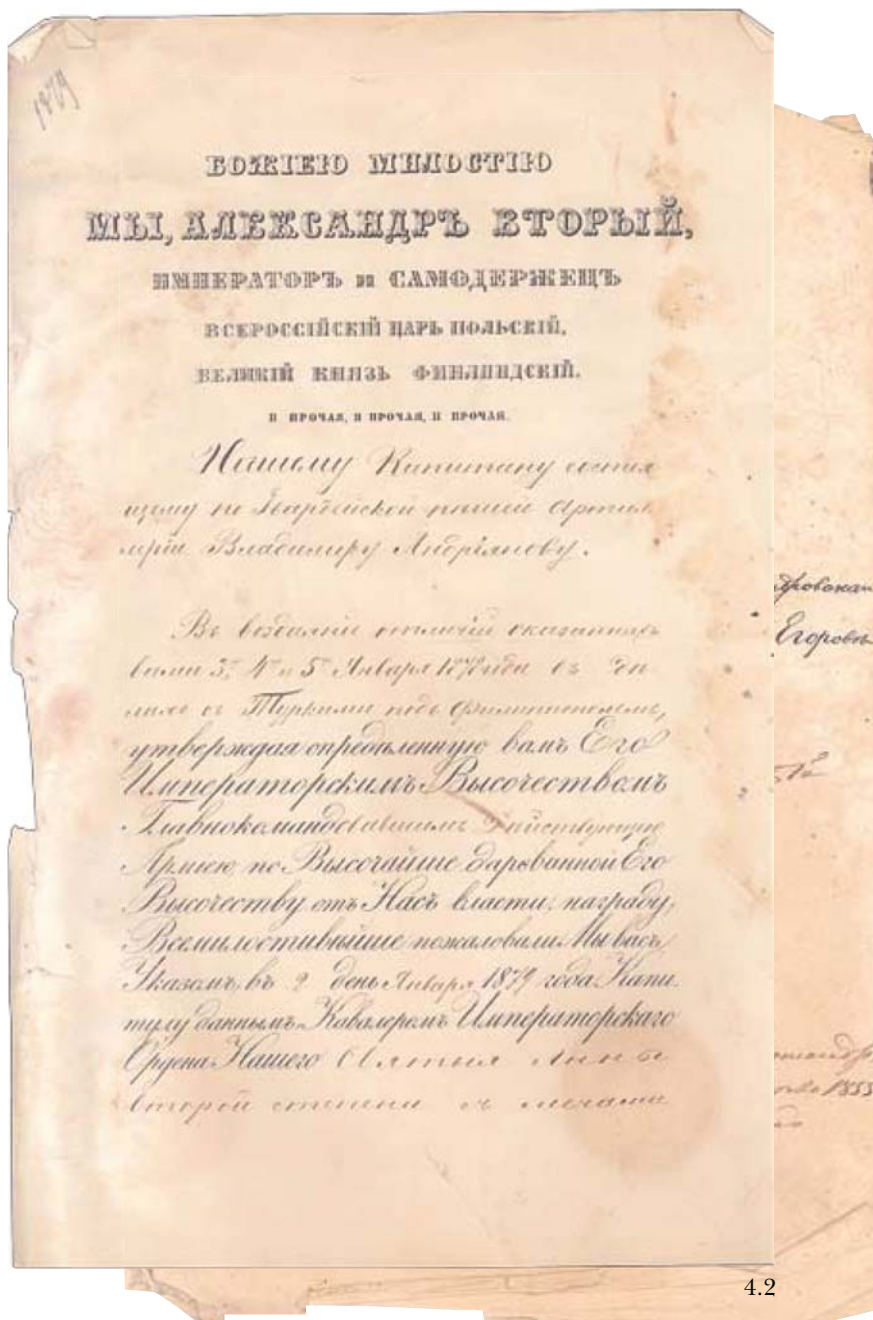 1879
БОЖІЕЮ МИЛОСТІЮ
МЫ, АЛЕКСАНДРЪ ВТОРЫЙ,
ИМПЕРАТОРЪ и САМОДЕРЖЕЦЪ
ВСЕРОССІЙСКІЙ ЦАРЬ ПОЛЬСКІЙ,
ВЕЛИКІЙ КНЯЗЬ ФИНЛЯНДСКІЙ,
И ПРОЧАЯ, И ПРОЧАЯ, И ПРОЧАЯ.
Нашему Капитану состоя
щему по Гвардейской пешей Артил
леріи Владиміру Андріянову.
Въ воздаяніе отличія оказаннаго
вами 3, 4 и 5 Января 1878 года въ
съ Турками подъ Филиппополемъ,
утверждая опредѣленную вамъ Его
Императорскимъ Высочествомъ
Главнокомандовавшимъ Дѣйствующею
Арміею, по Высочайше дарованной Его
Высочеству отъ Насъ власти, награду,
Всемилостивѣйше пожаловали Мы васъ
Указомъ, въ 2 день Января 1879 года Капи
тулу даннымъ, Кавалеромъ Императорскаго
Ордена Нашего Святыя Анны
второй степени съ мечами
Егоров
1855
4.2